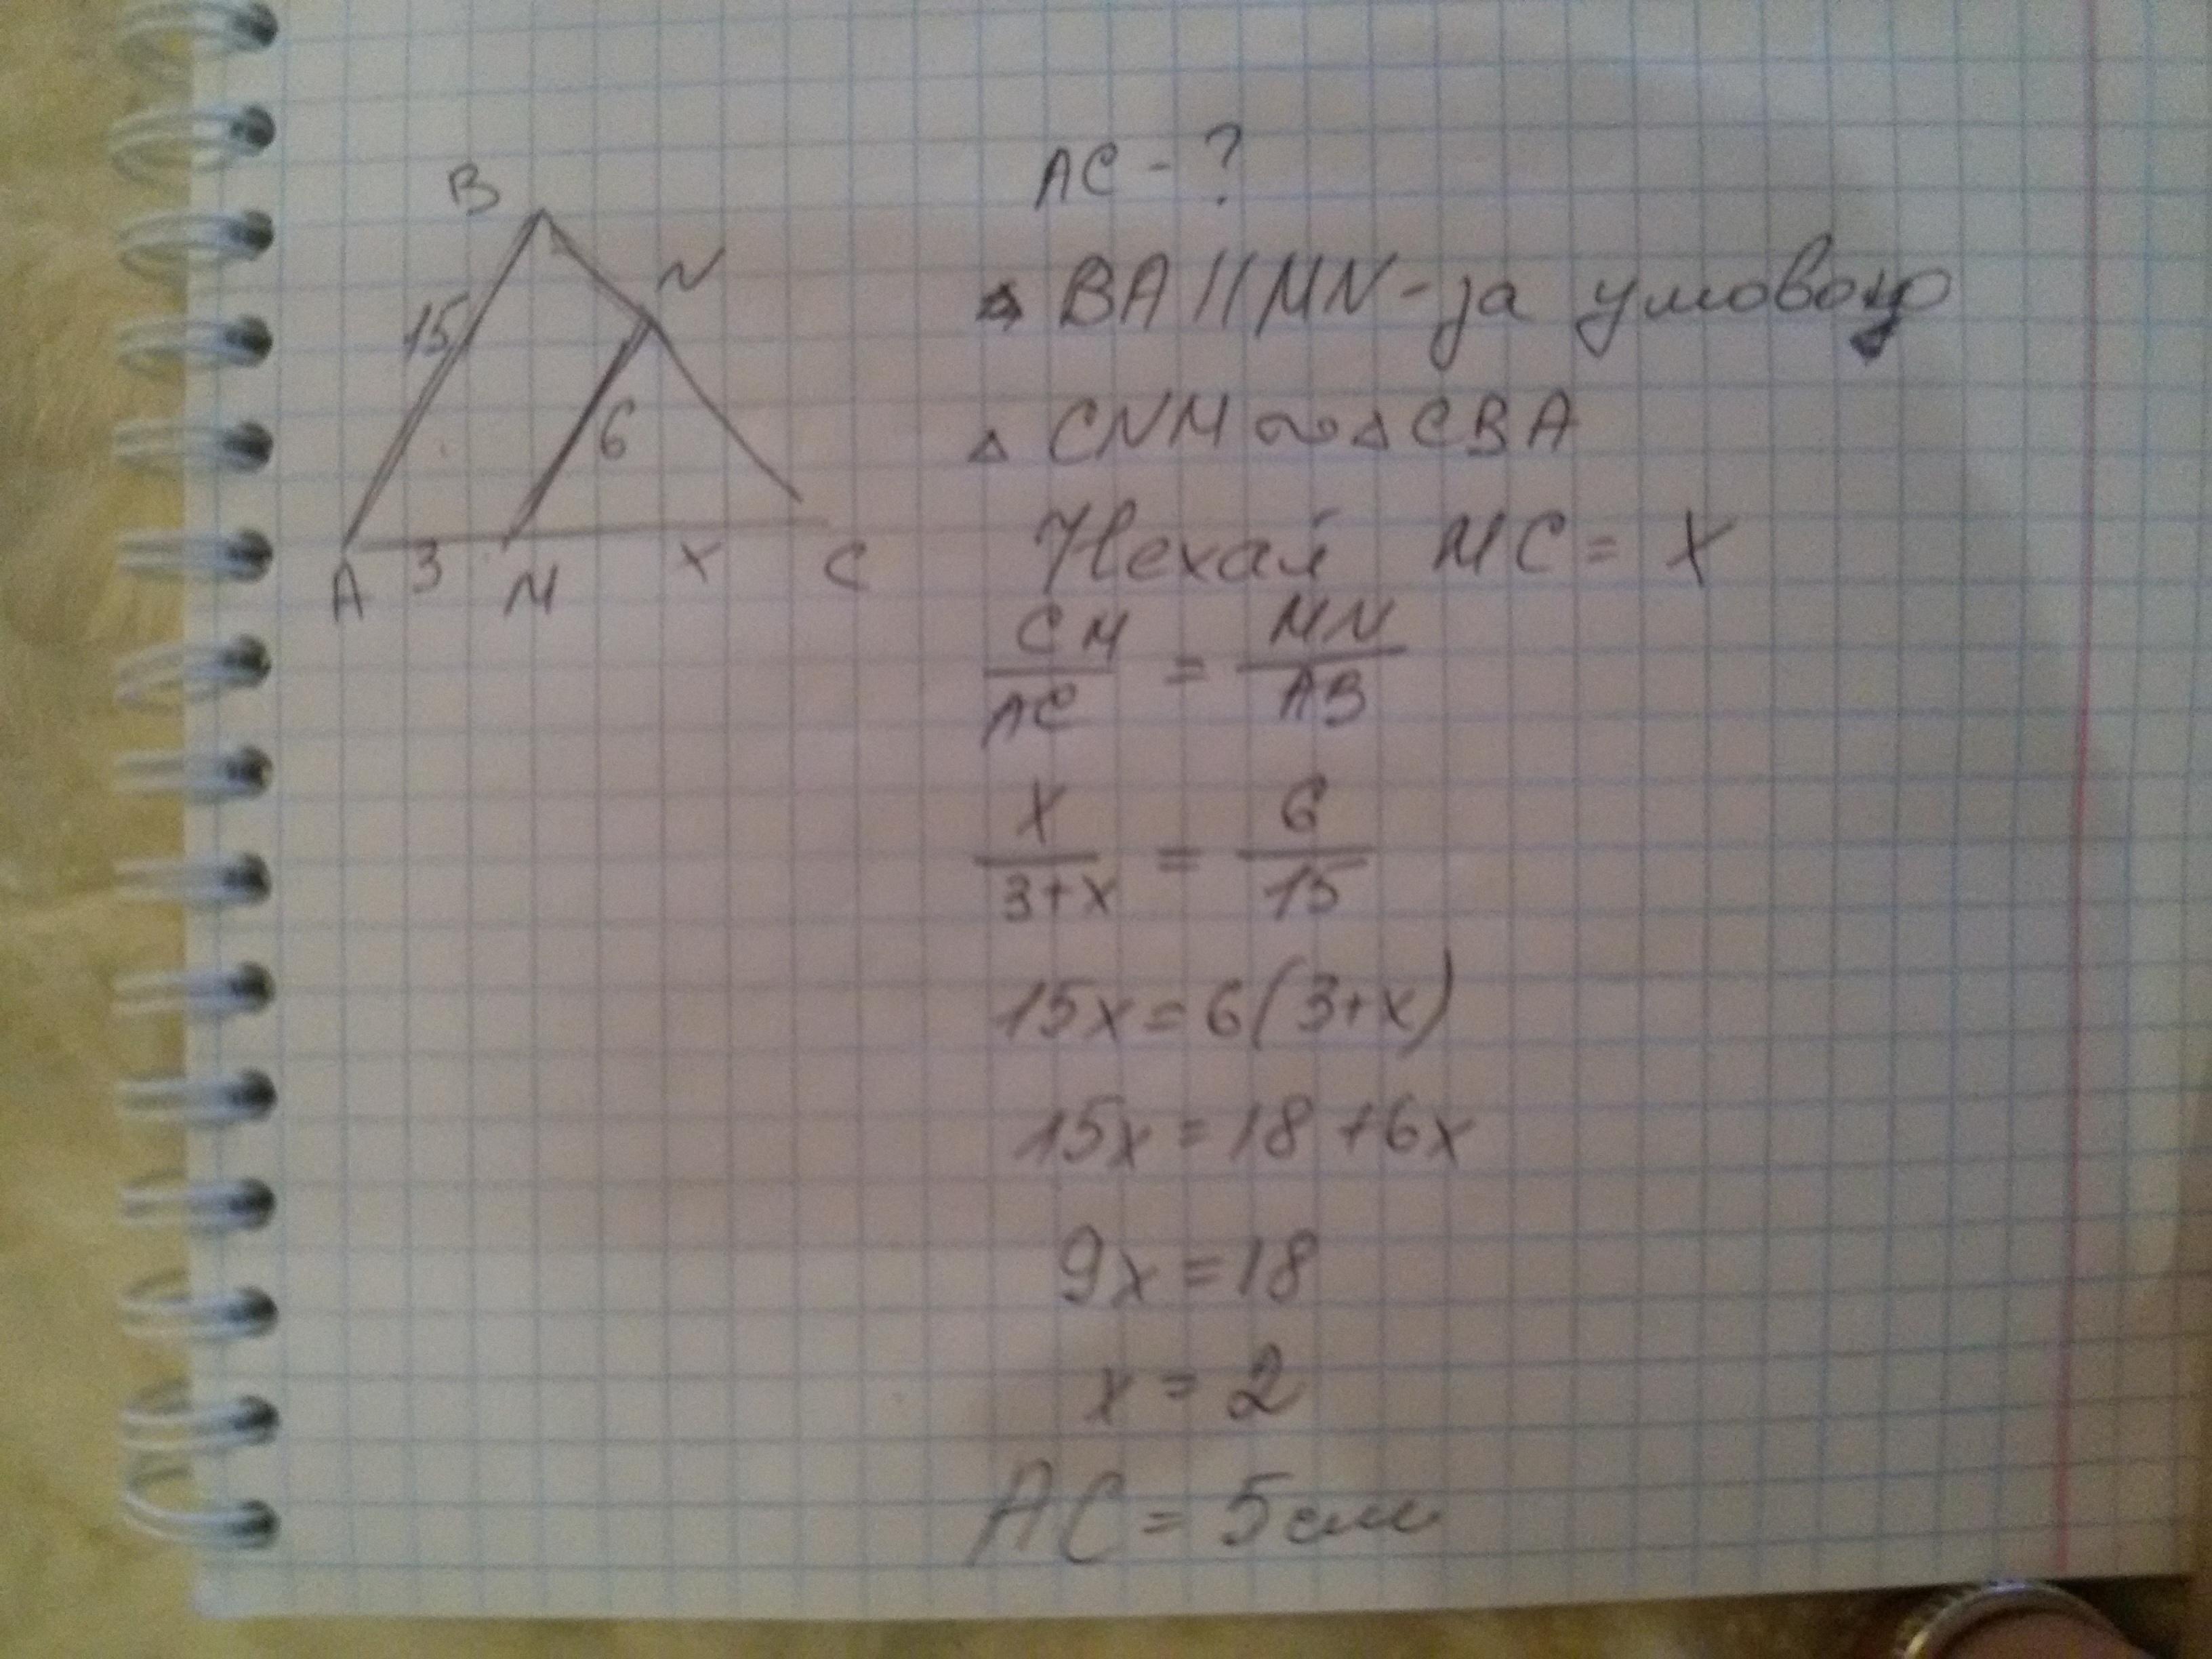 B
N
15
6
A 3 M x C
AC - ?
BA || MN - за умовою
△ CNM ∾ △ CBA
Нехай MC = x
CM/AC = MN/AB
x/3+x = 6/15
15x = 6(3+x)
15x = 18 + 6x
9x = 18
x = 2
AC = 5см